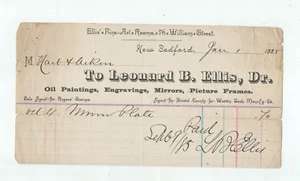 Ellis's Fine Art Rooms, 76 William Street.
New Bedford, Jan 1 188
M Hart & Aiken
To Leonard B. Ellis, Dr.
Oil Paintings, Engravings, Mirrors, Picture Frames.
Sole Agent for Rogers' Groups Agent for Bristol County for
Oct 11 Plate
Paid
L B Ellis